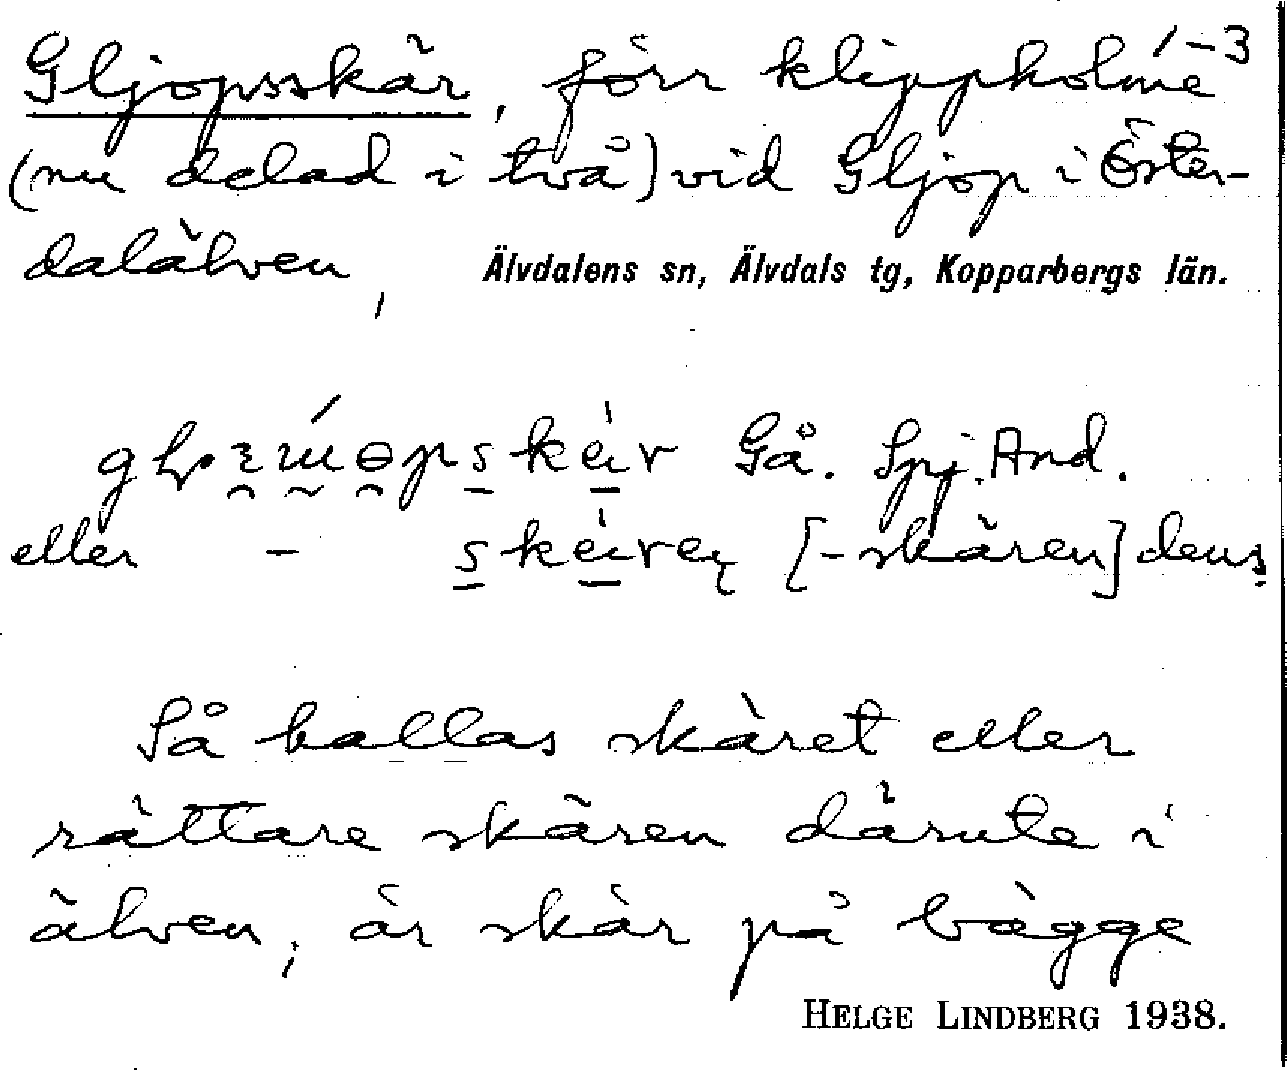 1-3
Gljopsskär, förr klippholme
(nu delad i två) vid Gljop i Öster-
dalälven, Älvdalens sn, Älvdals tg, Kopparbergs län.
Gå. Spj. And.
eller - [-skären] dens.
Så kallas skäret eller
rättare skären därute i
älven, är skär på bägge
HELGE LINDBERG 1938.